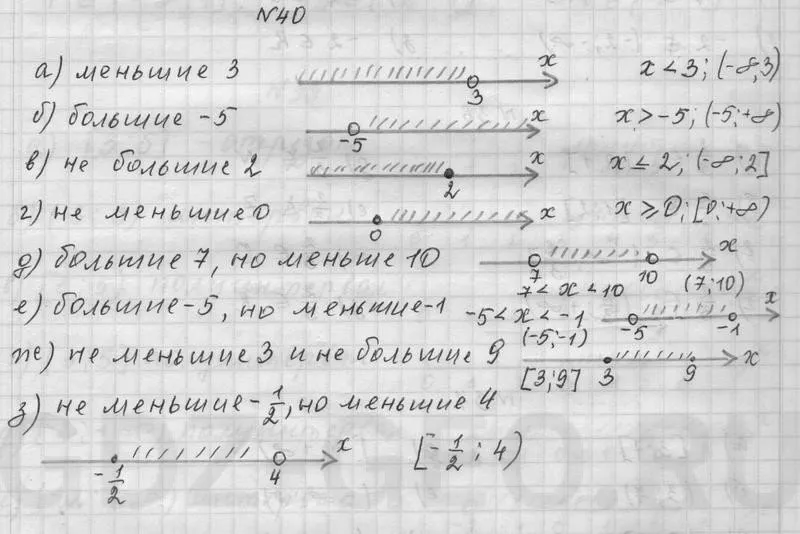 №40
а) меньшие 3 x 3 x < 3; (-∞;3)
б) большие -5 x -5 x > -5; (-5;+∞)
в) не большие 2 x 2 x ≤ 2; (-∞;2]
г) не меньшие 0 x 0 x ≥ 0; [0;+∞)
д) большие 7, но меньше 10 x 7 10
7 < x < 10 (7;10)
е) большие -5, но меньшие -1 -5 < x < -1 x -5 -1
(-5;-1)
ж) не меньшие 3 и не большие 9 x 3 9
[3;9]
з) не меньшие -1/2, но меньшие 4
x -1/2 4 [-1/2; 4)